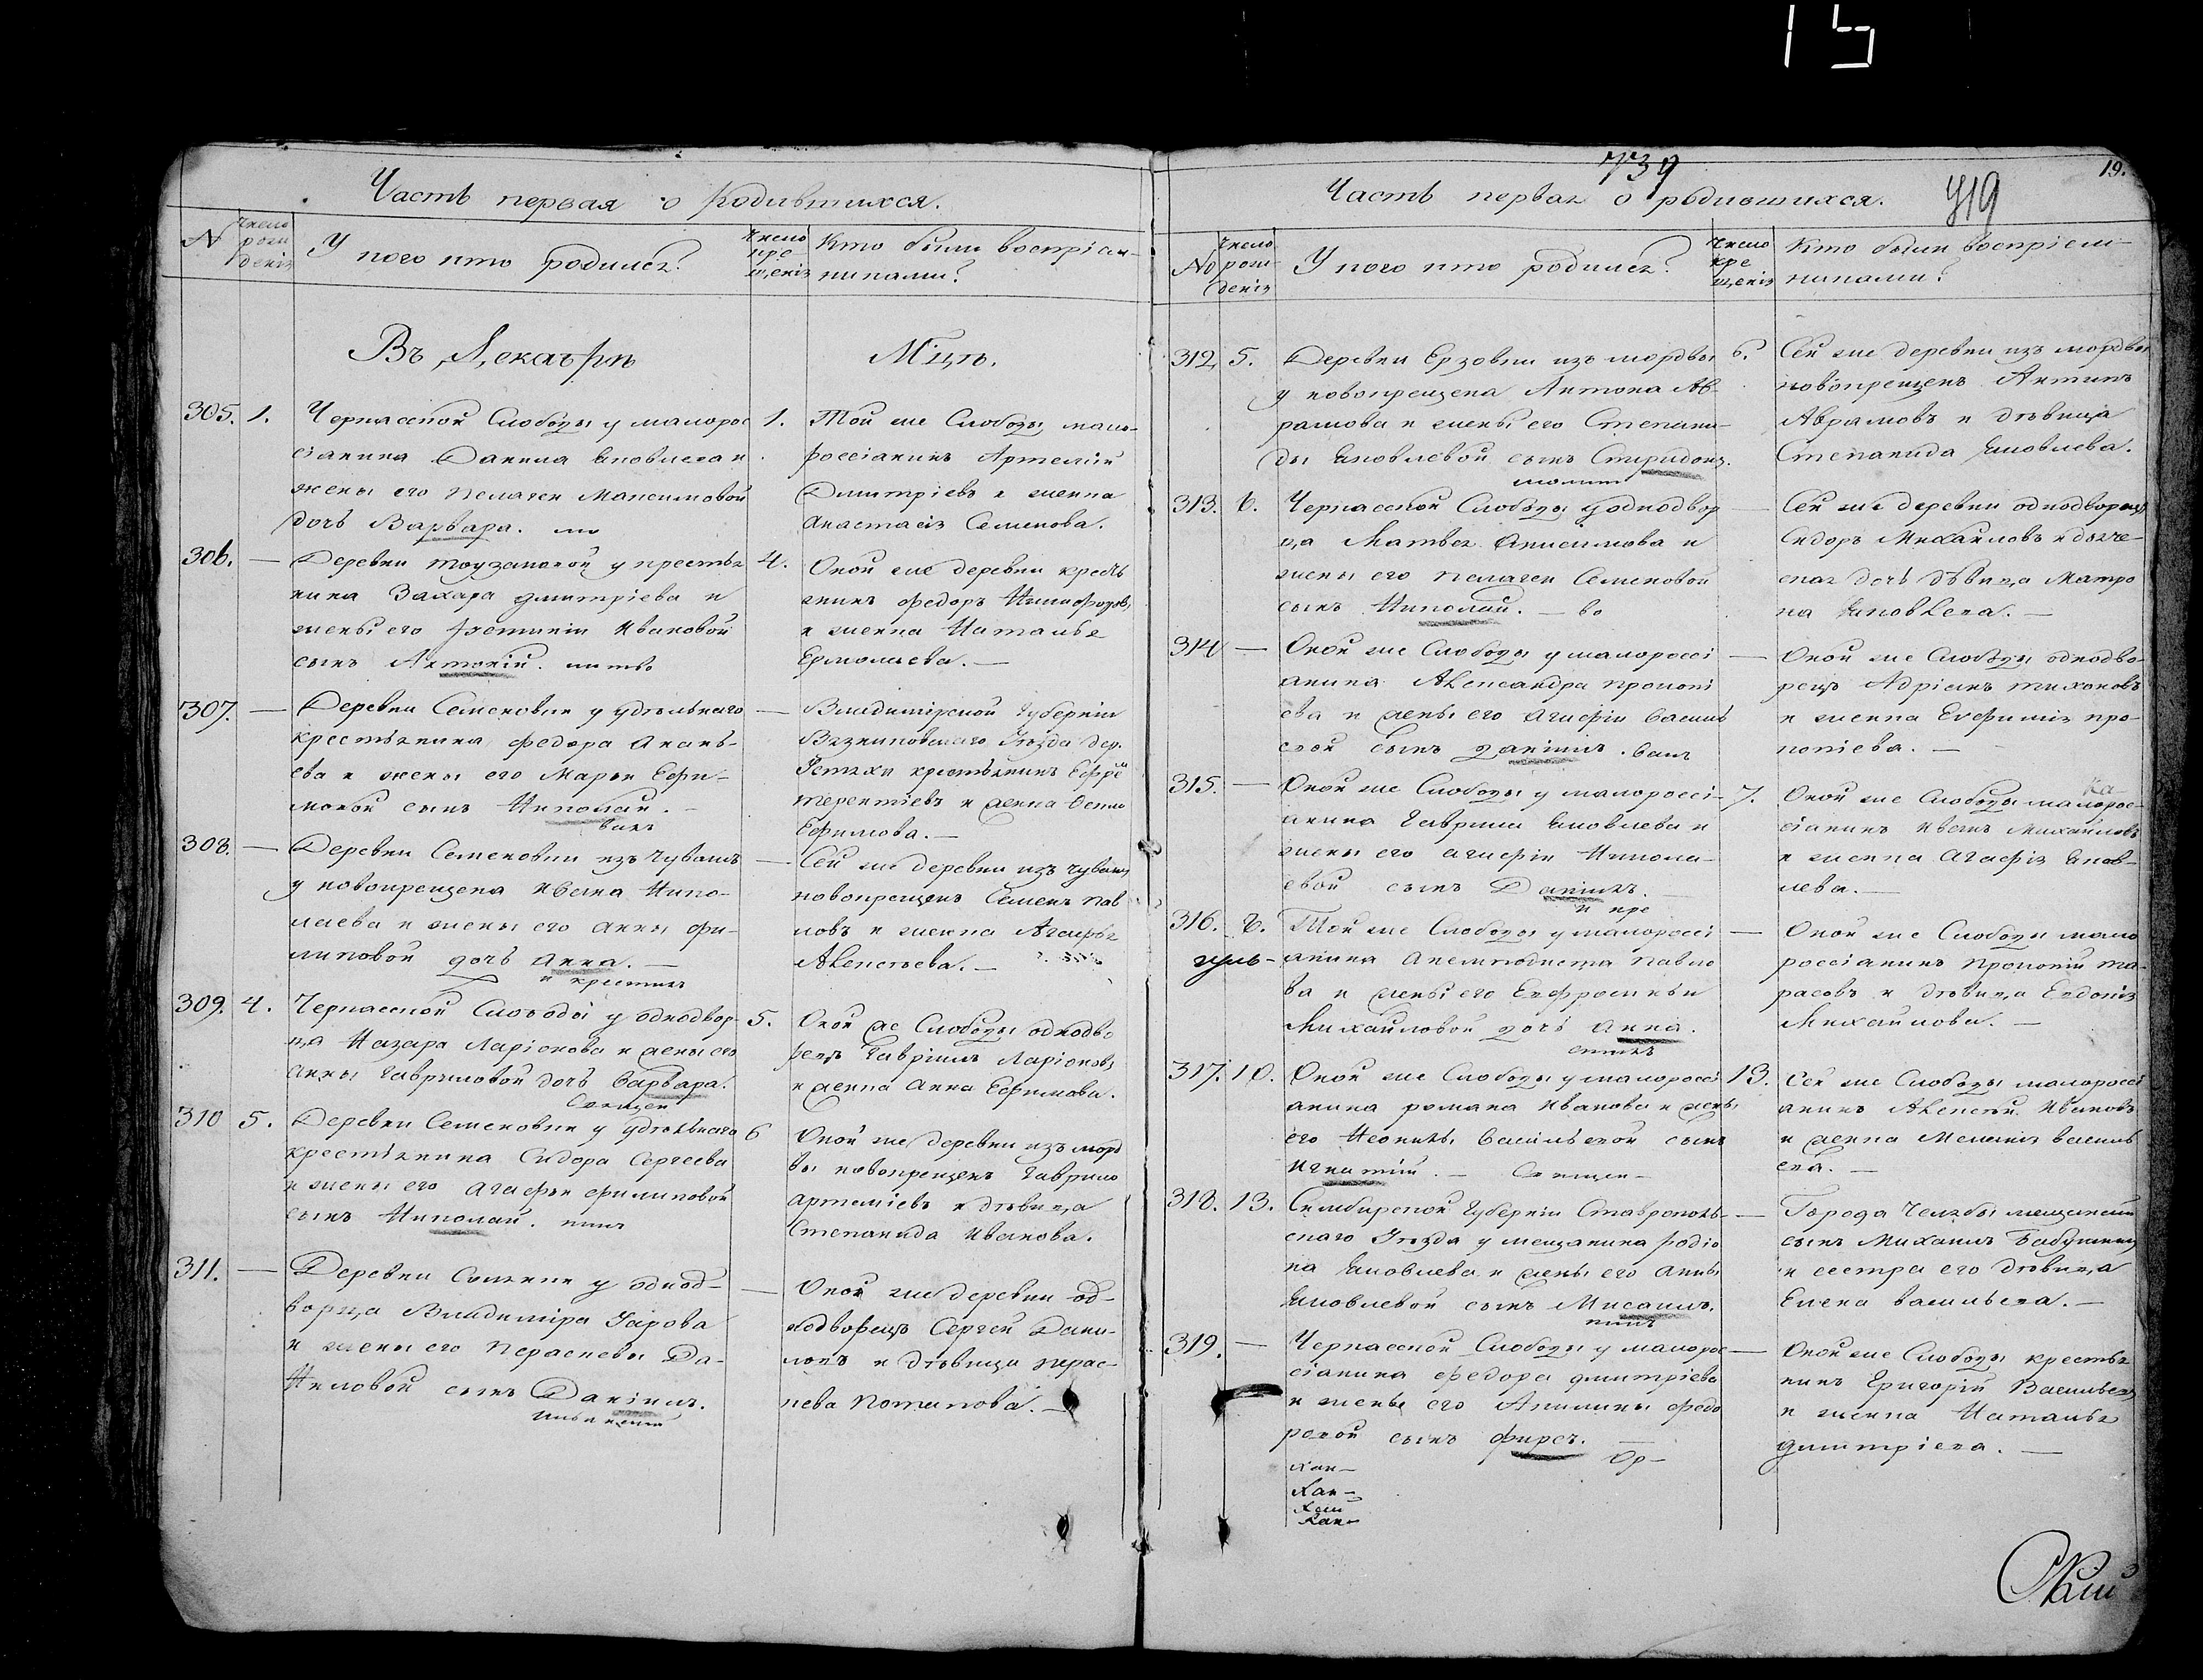 15
Часть первая о Родившихся.
N
число
рож
денія
У кого кто родился?
число
кре
щенія
Кто были воспріем-
никами?
Въ Декабрѣ
М-цѣ.
305. 1.
Черкасской Слободы у малорос
сіанина Данила Яковлева и
жены его Пелагеи Максимовой
дочь Варвара.
1.
Той же Слободы мало-
россіанинъ Артемій
Дмитріевъ и женка
Анастасія Семенова.
306. —
Деревни Тоузаковой у крестья
нина Захара Дмитріева и
жены его Фотинiи Ивановой
сынъ Антоній.
4.
Оной же деревни кресть
янинъ Федоръ Никифоровъ
и женка Наталья
Ермолаева. —
307. —
Деревни Семеновки у удѣльнаго
крестьянина Федора Анань-
ева и жены его Марьи Ефи-
мовой сынъ Николай. —
—
Владимірской Губерніи
Вязниковскаго Уѣзда дер.
крестьянинъ Ефре
Терентіевъ и женка
Ефимова. —
308. —
Деревни Семеновки изъ чувашъ
у новокрещена Ивана Нико-
лаева и жены его Анны Фи-
липовой дочь Анна. —
—
Сей же деревни изъ чувашъ
новокрещенъ Семенъ Пав
ловъ и женка Агафья
Алексѣева. —
309. 4.
Черкасской Слободы у однодвор-
ца Назара Ларіонова и жены его
Анны Гавриловой дочь Варвара.
5.
Оной же Слободы однодво
рецъ Гавріилъ Ларіоновъ
и женка Анна Ефимова.
310 5.
Деревни Семеновки у удѣльнаго
крестьянина Сидора Сергеева
и жены его Агафьи Филиповой
сынъ Николай.
6
Оной же деревни изъ морд
вы новокрещенъ Гаврило
Артеміевъ и дѣвица
Степанида Иванова.
311. —
Деревни у однод-
ворца Владиміра Уарова
и жены его Парасковьи Да-
ниловой сынъ Даніилъ.
—
Оной же деревни од-
нодворецъ Сергей Дани-
ловъ и дѣвица Парас-
кева Потапова. —
739
19.
719
Часть первая о родившихся.
No
число
рож-
денія
У кого кто родился?
число
кре
щенія
Кто были воспріем-
никами?
312. 5.
Деревни Ерзовки изъ мордвы
у новокрещена Антона Ав-
рамова и жены его Степани-
ды Яковлевой сынъ Спиридонъ.
6.
Сей же деревни изъ мордвы
новокрещенъ Антипъ
Аврамовъ и дѣвица
Степанида Яковлева.
313. 6.
Черкасской Слободы у однодвор
ца Матвея Анисимова и
жены его Пелагеи Семеновой
сынъ Николай. —
—
Сей же деревни однодворецъ
Сидоръ Михайловъ и дьяче-
ская дочь дѣвица Матро
на Яковлева. —
314 —
Оной же Слободы у малороссі
анина Александра Прокопі
ева и жены его Агафіи Василь
евой сынъ Даніилъ.
—
Оной же Слободы однодво-
рецъ Адріанъ Тихоновъ
и женка Евфимія Про-
копіева. —
315. —
Оной же Слободы у малороссі-
анина Гаврила Яковлева и
жены его Агафіи Никола-
евой сынъ Даніилъ.
7.
Оной же Слободы малорос-
сіанинъ Иванъ Михайловъ
и женка Агафія Яков-
лева. —
316. 6.
Той же Слободы у малороссі
анина Павло
ва и жены его Евфросиньи
Михайловой дочь Анна.
—
Оной же Слободы мало
россіанинъ Прокопій Та-
расовъ и дѣвица Евдокія
Михайлова. —
317. 10.
Оной же Слободы у малороссі
анина Романа Иванова и жены
его Неонилы Васильевой сынъ
Игнатій. —
13.
Сей же Слободы малороссі
анинъ Алексѣй Ивановъ
и женка Меланія Василь
ева. —
318. 13.
Симбирской Губерніи Ставрополь-
скаго Уѣзда у мещанина Родіо
на Яковлева и жены его Анны
Яковлевой сынъ Мисаилъ.
—
Города Челябы мещанскій
сынъ Михаилъ Бабушкинъ
и сестра его дѣвица
Елена Васильева. —
319. —
Черкасской Слободы у малорос
сіанина Федора Дмитріева
и жены его Акилины Федо
ровой сынъ Фирсъ. —
—
Оной же Слободы кресть
янинъ Григорій Васильевъ
и женка Наталья
Дмитріева. —